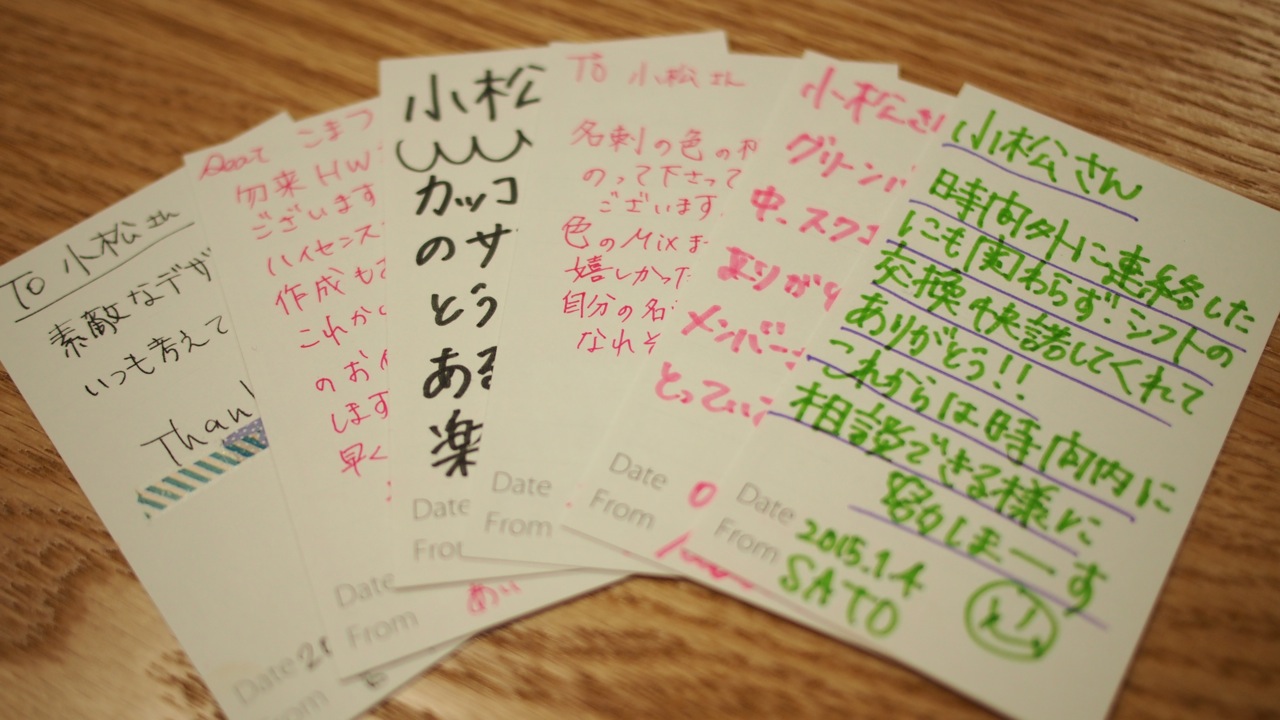 To 小松さん
素敵なデザ
いつも考えて
Than
Date 2
From
Dear こまつ
勿来HW
ございます
ハイセンス
作成も
これか
のお
します
早く
Date
From
小松
カッコ
のサ
とう
ある
楽
Date
From
To 小松さん
名刺の色の
のって下さって
ございます
色のMixま
嬉しかった
自分の名
なれそ
Date
From
小松さん
グリーン
中、スク
ありがと
メンバー
とってい
Date
From
小松さん
時間外に連絡した
にも関わらず!シフトの
交換快諾してくれて
ありがとう!!
これからは時間内に
相談できる様に
努力しまーす
Date 2015.1.4
From SATO